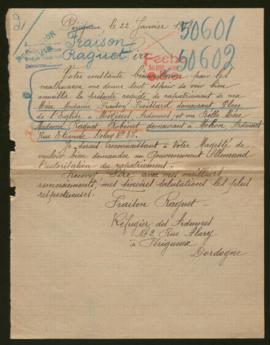 Périgueux le 22 Janvier
50601
50602
Fraiton
Raquet
Sire
Votre constante bienveillance pour les
malheureux me donne tout espoir de voir bien
accueillie la présente requête de rapatriement de ma
Mère Madame Fraiton demeurant Place
de l'Eglise à Ardennes et ma Belle Mère
Madame Raquet demeurant à Mohon Ardennes
Rue
Je serai reconnaissant à votre Majesté de
vouloir bien demander au Gouvernement Allemand
l'autorisation du rapatriement
Recevez Sire avec mes meilleurs
remerciements, mes sincères salutations les plus
respectueuses
Fraiton Raquet
Réfugier des Ardennes
Rue
à Périgueux
Dordogne